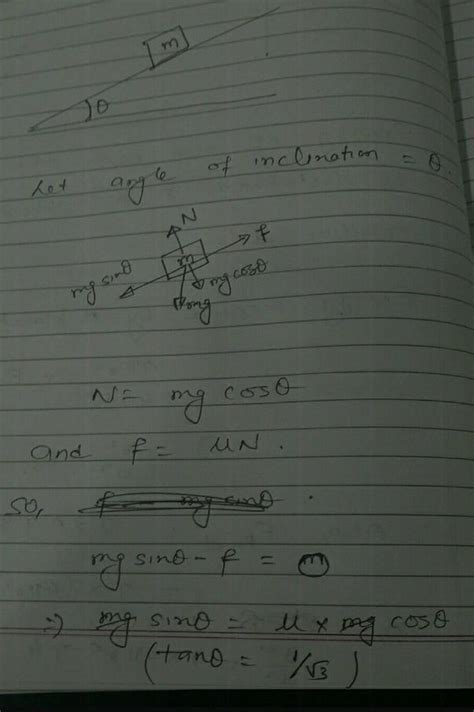 m
θ
Let angle of inclination = θ.
N
f
m
mg sinθ
mg cosθ
mg
N = mg cosθ
and f = μN.
so, f = mg sinθ.
mg sinθ - f = 0
=) mg sinθ = μ x mg cosθ
(tanθ = 1/√3)